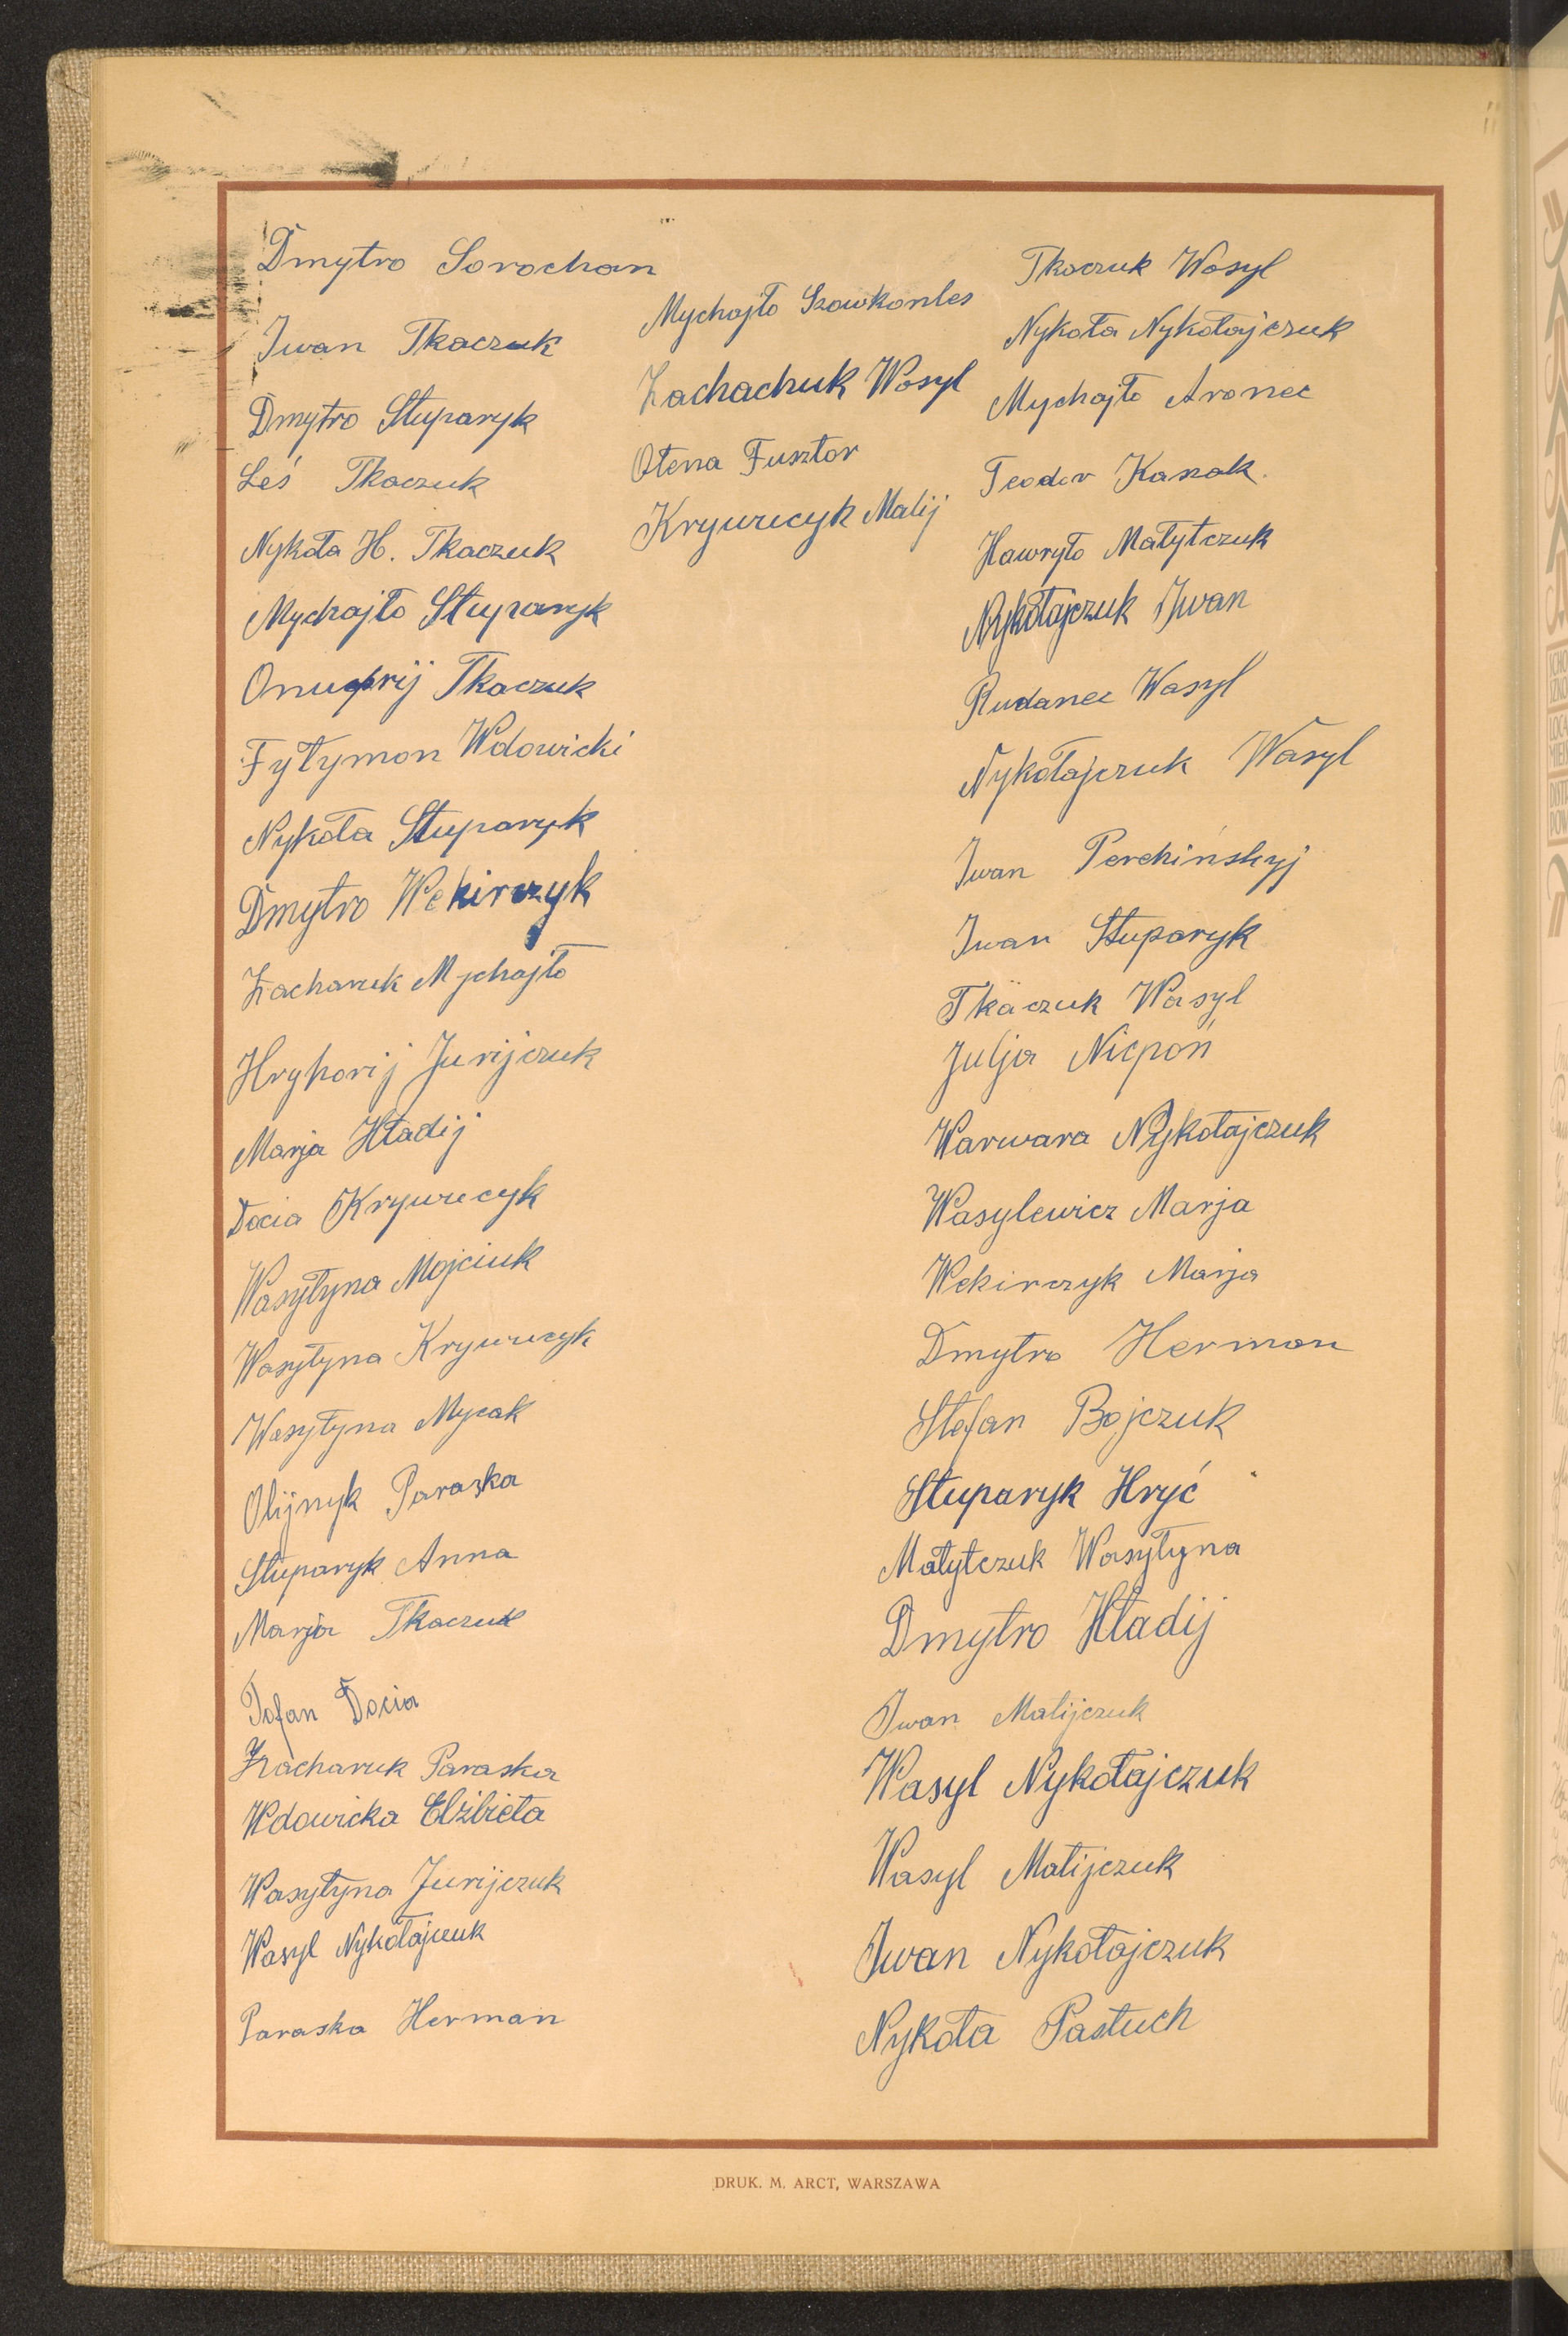 Dmytro Sorochan
Iwan Tkaczuk
Dmytro Stuparyk
Leś Tkaczuk
Nykoła H. Tkaczuk
Mychajło Stuparyk
Onufrij Tkaczuk
Fyłymon Wdowicki
Nykoła Stuparyk
Dmytro Wekirczyk
Zacharuk Mychajło
Hryhorij Jurijczuk
Marja Hładij
Docia Krywecyk
Wasyłyna Mojciuk
Wasyłyna
Wasyłyna Mycak
Olijnyk Paraska
Stuparyk Anna
Marja Tkaczuk
Tofan Docia
Zacharuk Paraska
Wdowicka Elżbieta
Wasyłyna Jurijczuk
Wasyl Nykołajczuk
Paraska Herman
Mychajło
Zachachuk Wasyl
Ołena Fusztor
Malij
Tkaczuk Wasyl
Nykoła Nykołajczuk
Mychajło Aronec
Teodor Kazak.
Hawryło Matytczuk
Nykołajczuk Iwan
Rudanec Wasyl
Nykołajczuk Wasyl
Iwan Perehińskyj
Iwan Stuparyk
Tkaczuk Wasyl
Julja Niepoń
Warwara Nykołajczuk
Wasylewicz Marja
Wekirczyk Marja
Dmytro Herman
Stefan Bojczuk
Stuparyk Hryć
Matytczuk Wasyłyna
Dmytro Hładij
Iwan Matijczuk
Wasyl Nykołajczuk
Wasyl Matijczuk
Iwan Nykołajczuk
Nykoła Pastuch
DRUK. M. ARCT, WARSZAWA